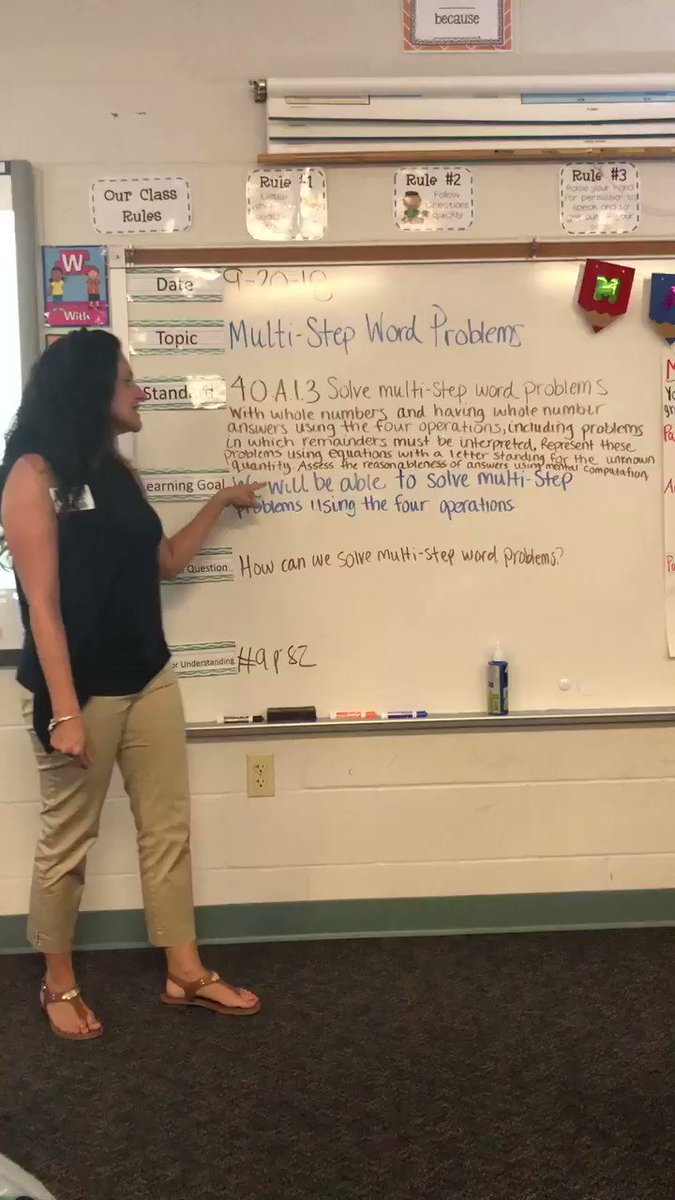 because
Our Class
Rules
Rule #1
Rule #2
Follow
Directions
quickly
Rule #3
Raise your hand
for permission to
speak and to
get out of your
W
With
M
Date
Topic
Multi-Step Word Problems
4.O.A.1.3 Solve multi-step word problems
With whole numbers and having whole number
answers using the four operations, including problems
in which remainders must be interpreted. Represent these
problems using equations with a letter standing for the unknown
quantity. Assess the reasonableness of answers using mental computation
Learning Goal
We will be able to solve multi-step
problems using the four operations.
Question
How can we solve multi-step word problems?
Understanding
#9 p 82